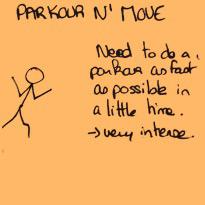 PARKOUR N' MOVE
Need to do a
parkour as fast
as possible in
a little time.
→ very intense.